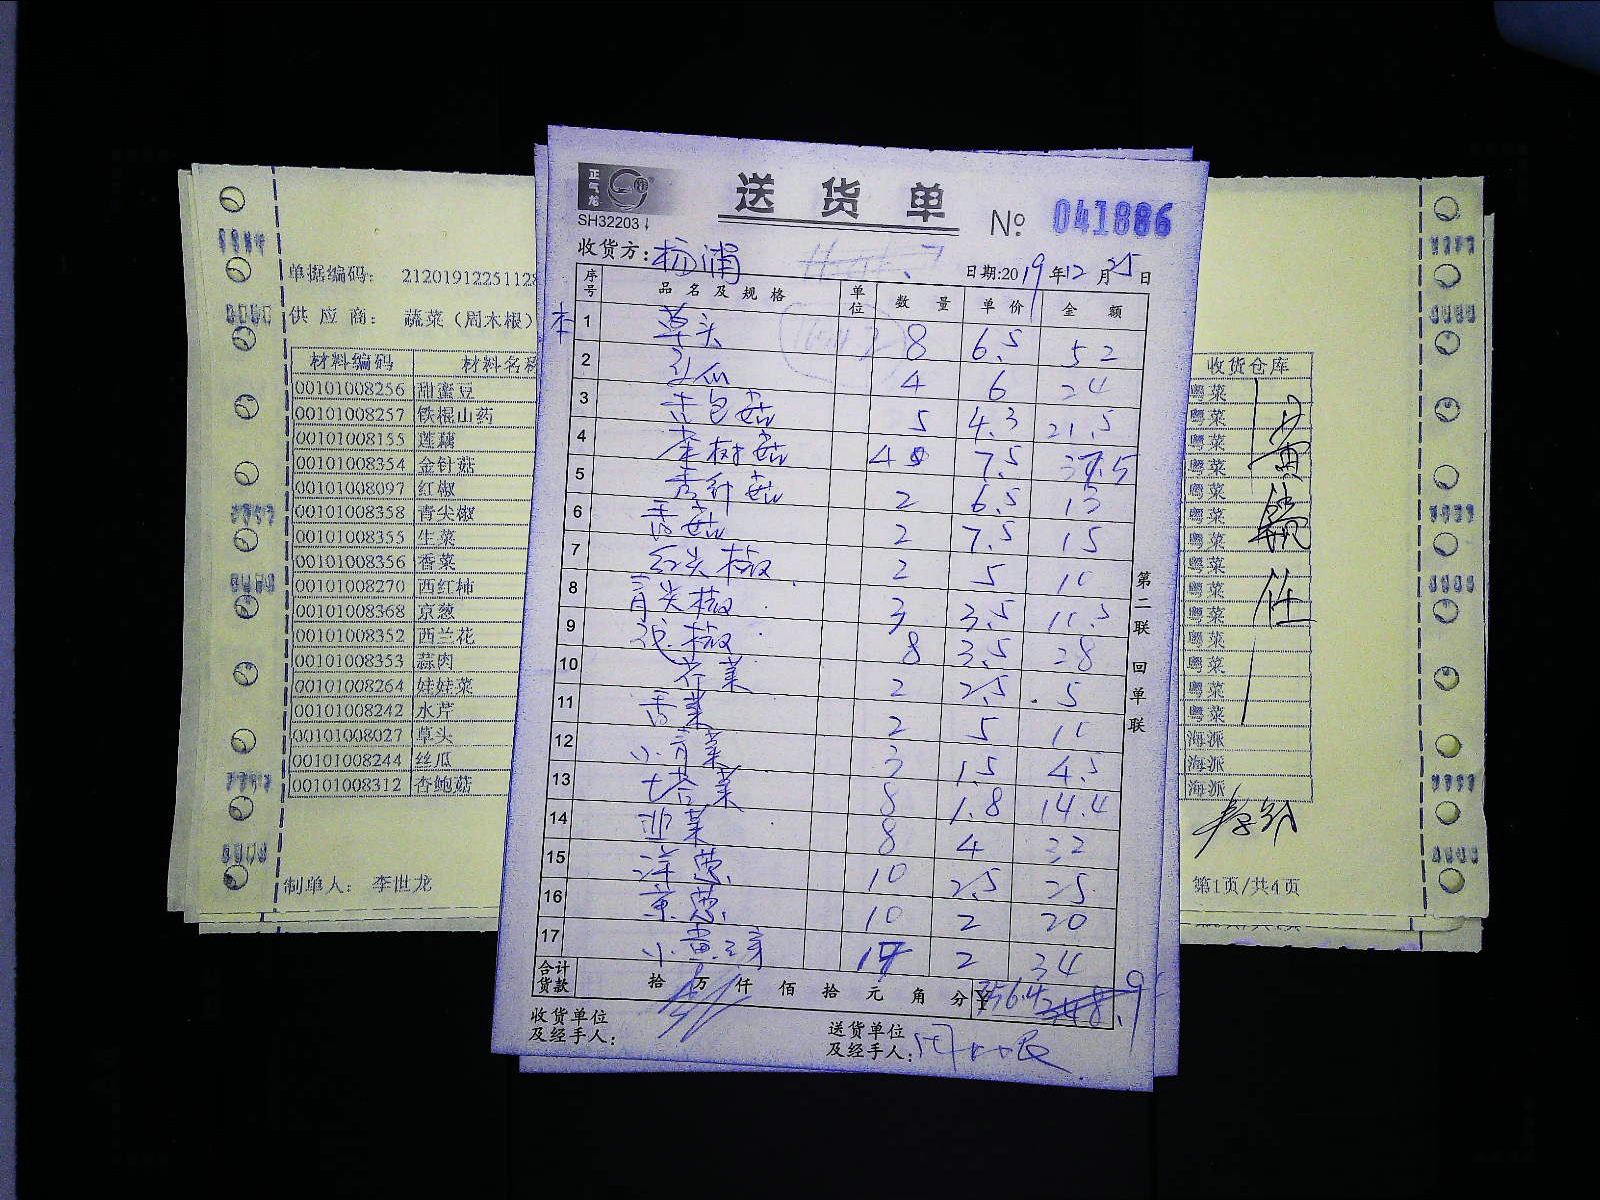 正气龙
SH32203
送货单
№ 041886
收货方：杨浦
日期：2019年12月25日
序号 品名及规格 单位 数量 单价 金额
1 草头 8 6.5 52
2 丝瓜 4 6 24
3 杏包菇 5 4.3 21.5
4 茶树菇 7.5
5 秀针菇 2 6.5 13
6 香菇 2 7.5 15
7 红尖椒 2 5 10
8 青尖椒 3 3.5
9 8 3.5 28
10 芹菜 2 2.5 5
11 香菜 2 5 10
12 小青菜 3 1.5 4.5
13 塔菜 8 1.8 14.4
14 韭菜 8 4 32
15 洋葱 10 2.5 25
16 京葱 10 2 20
17 小黄瓜 17 2 34
合计货款 拾 万 仟 佰 拾 元 角 分 ¥356.4
收货单位及经手人：
送货单位及经手人：
第二联 回单联
单据编码： 2120191225112
供应商： 蔬菜（周木根）
材料编码 材料名称 收货仓库
00101008256 甜蜜豆 粤菜
00101008257 铁棍山药 粤菜
00101008155 莲藕 粤菜
00101008354 金针菇 粤菜
00101008097 红椒 粤菜
00101008358 青尖椒 粤菜
00101008355 生菜 粤菜
00101008356 香菜 粤菜
00101008270 西红柿 粤菜
00101008368 京葱 粤菜
00101008352 西兰花 粤菜
00101008353 蒜肉 粤菜
00101008264 娃娃菜 粤菜
00101008242 水芹 粤菜
00101008027 草头 海派
00101008244 丝瓜 海派
00101008312 杏鲍菇 海派
制单人： 李世龙
第1页/共4页